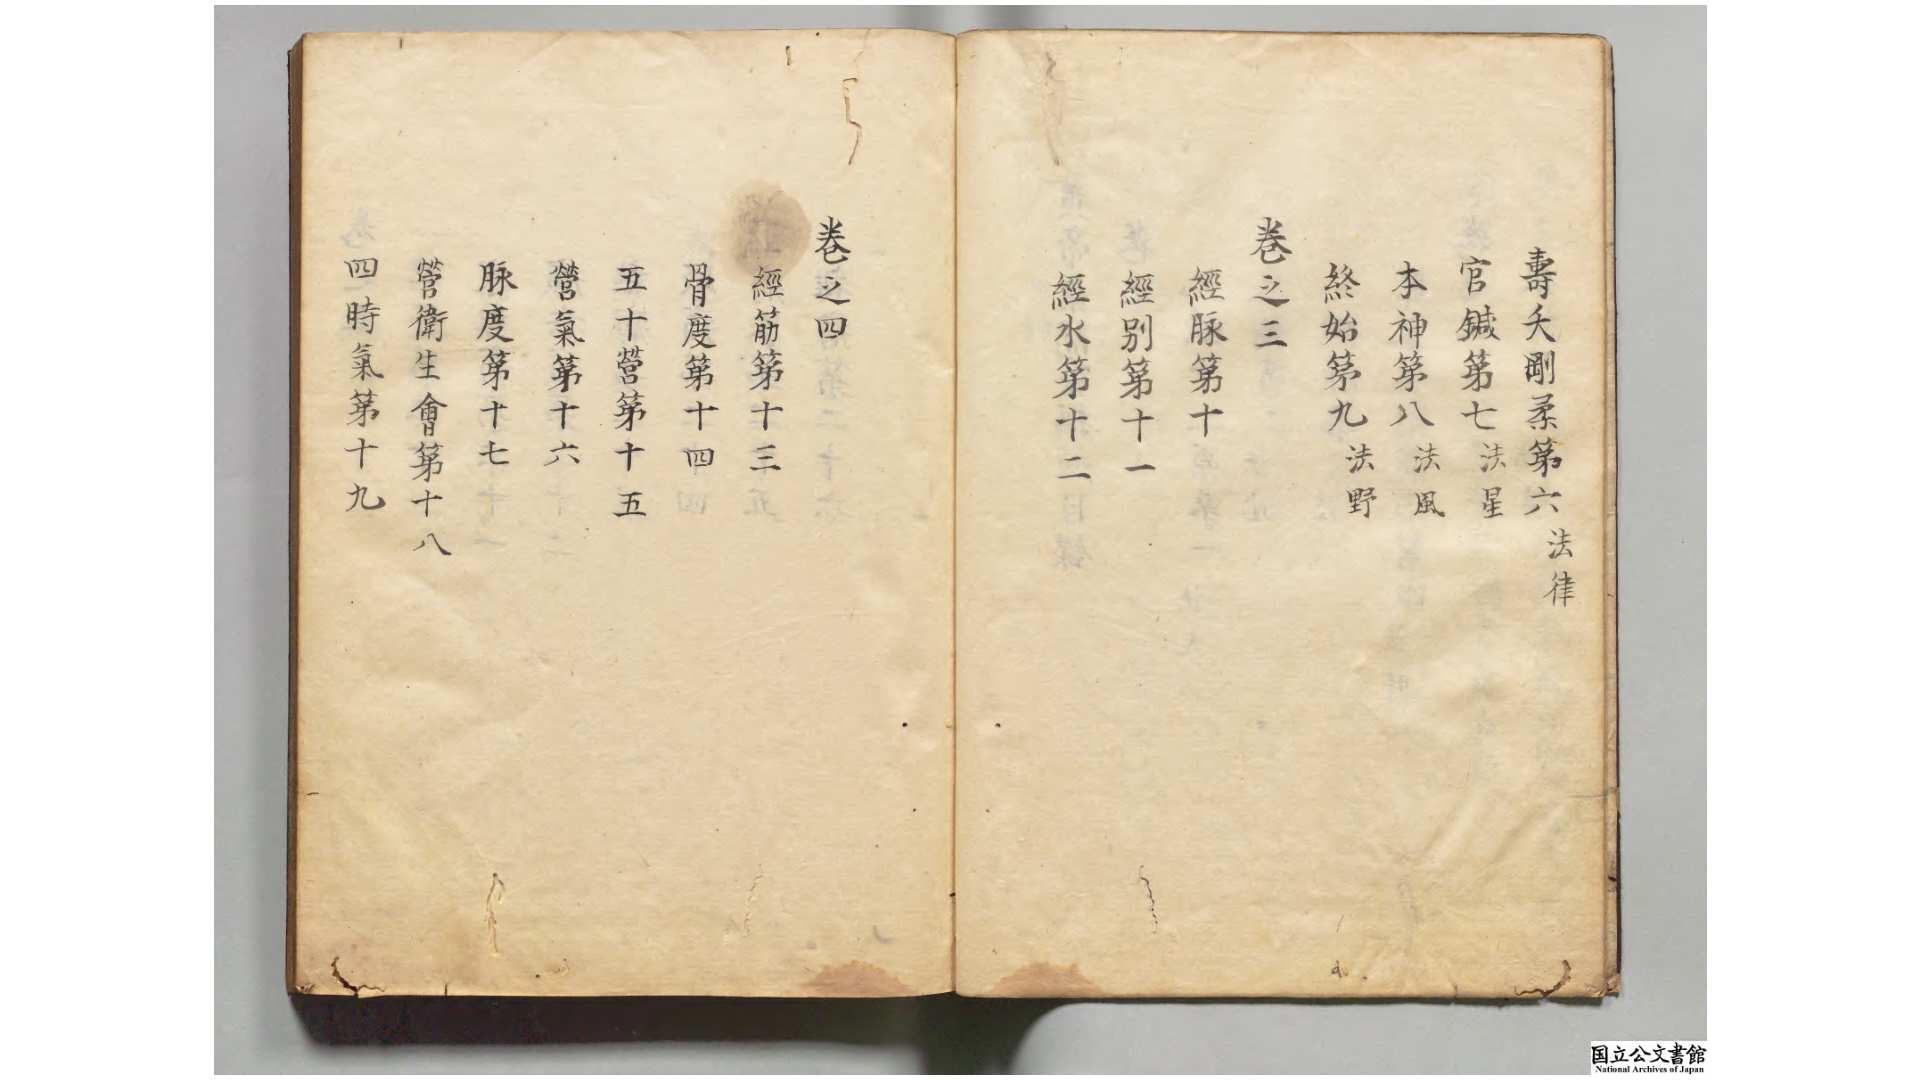 壽夭剛柔第六 法律
官鍼第七 法星
本神第八 法風
終始第九 法野
卷之三
經脉第十
經别第十一
經水第十二
卷之四
經筋第十三
骨度第十四
五十營第十五
營氣第十六
脉度第十七
營衛生會第十八
四時氣第十九
国立公文書館
National Archives of Japan